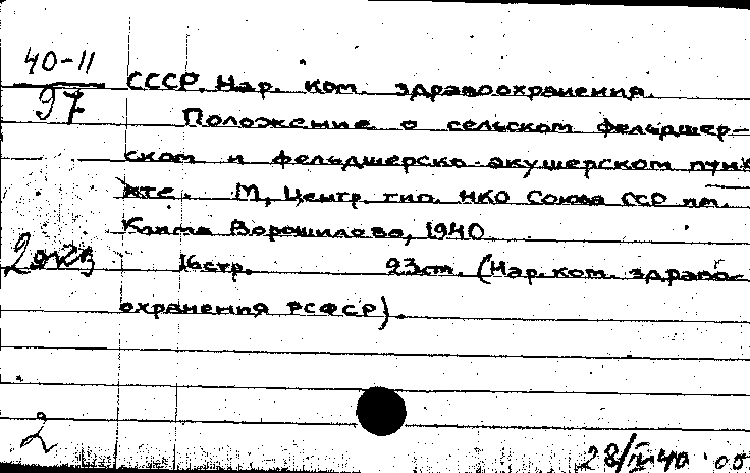 40-11
97
СССР. Нар. ком. здравоохранения.
Положение о сельском фельдшер-
ском и фельдшерско-акушерском пунк
кте. М, Центр. тип. НКО Союза ССР им.
Клима Ворошилова, 1940
2 экз
16стр. 23см. (Нар. ком. здраво-
охранения РСФСР).
2
28/II-40